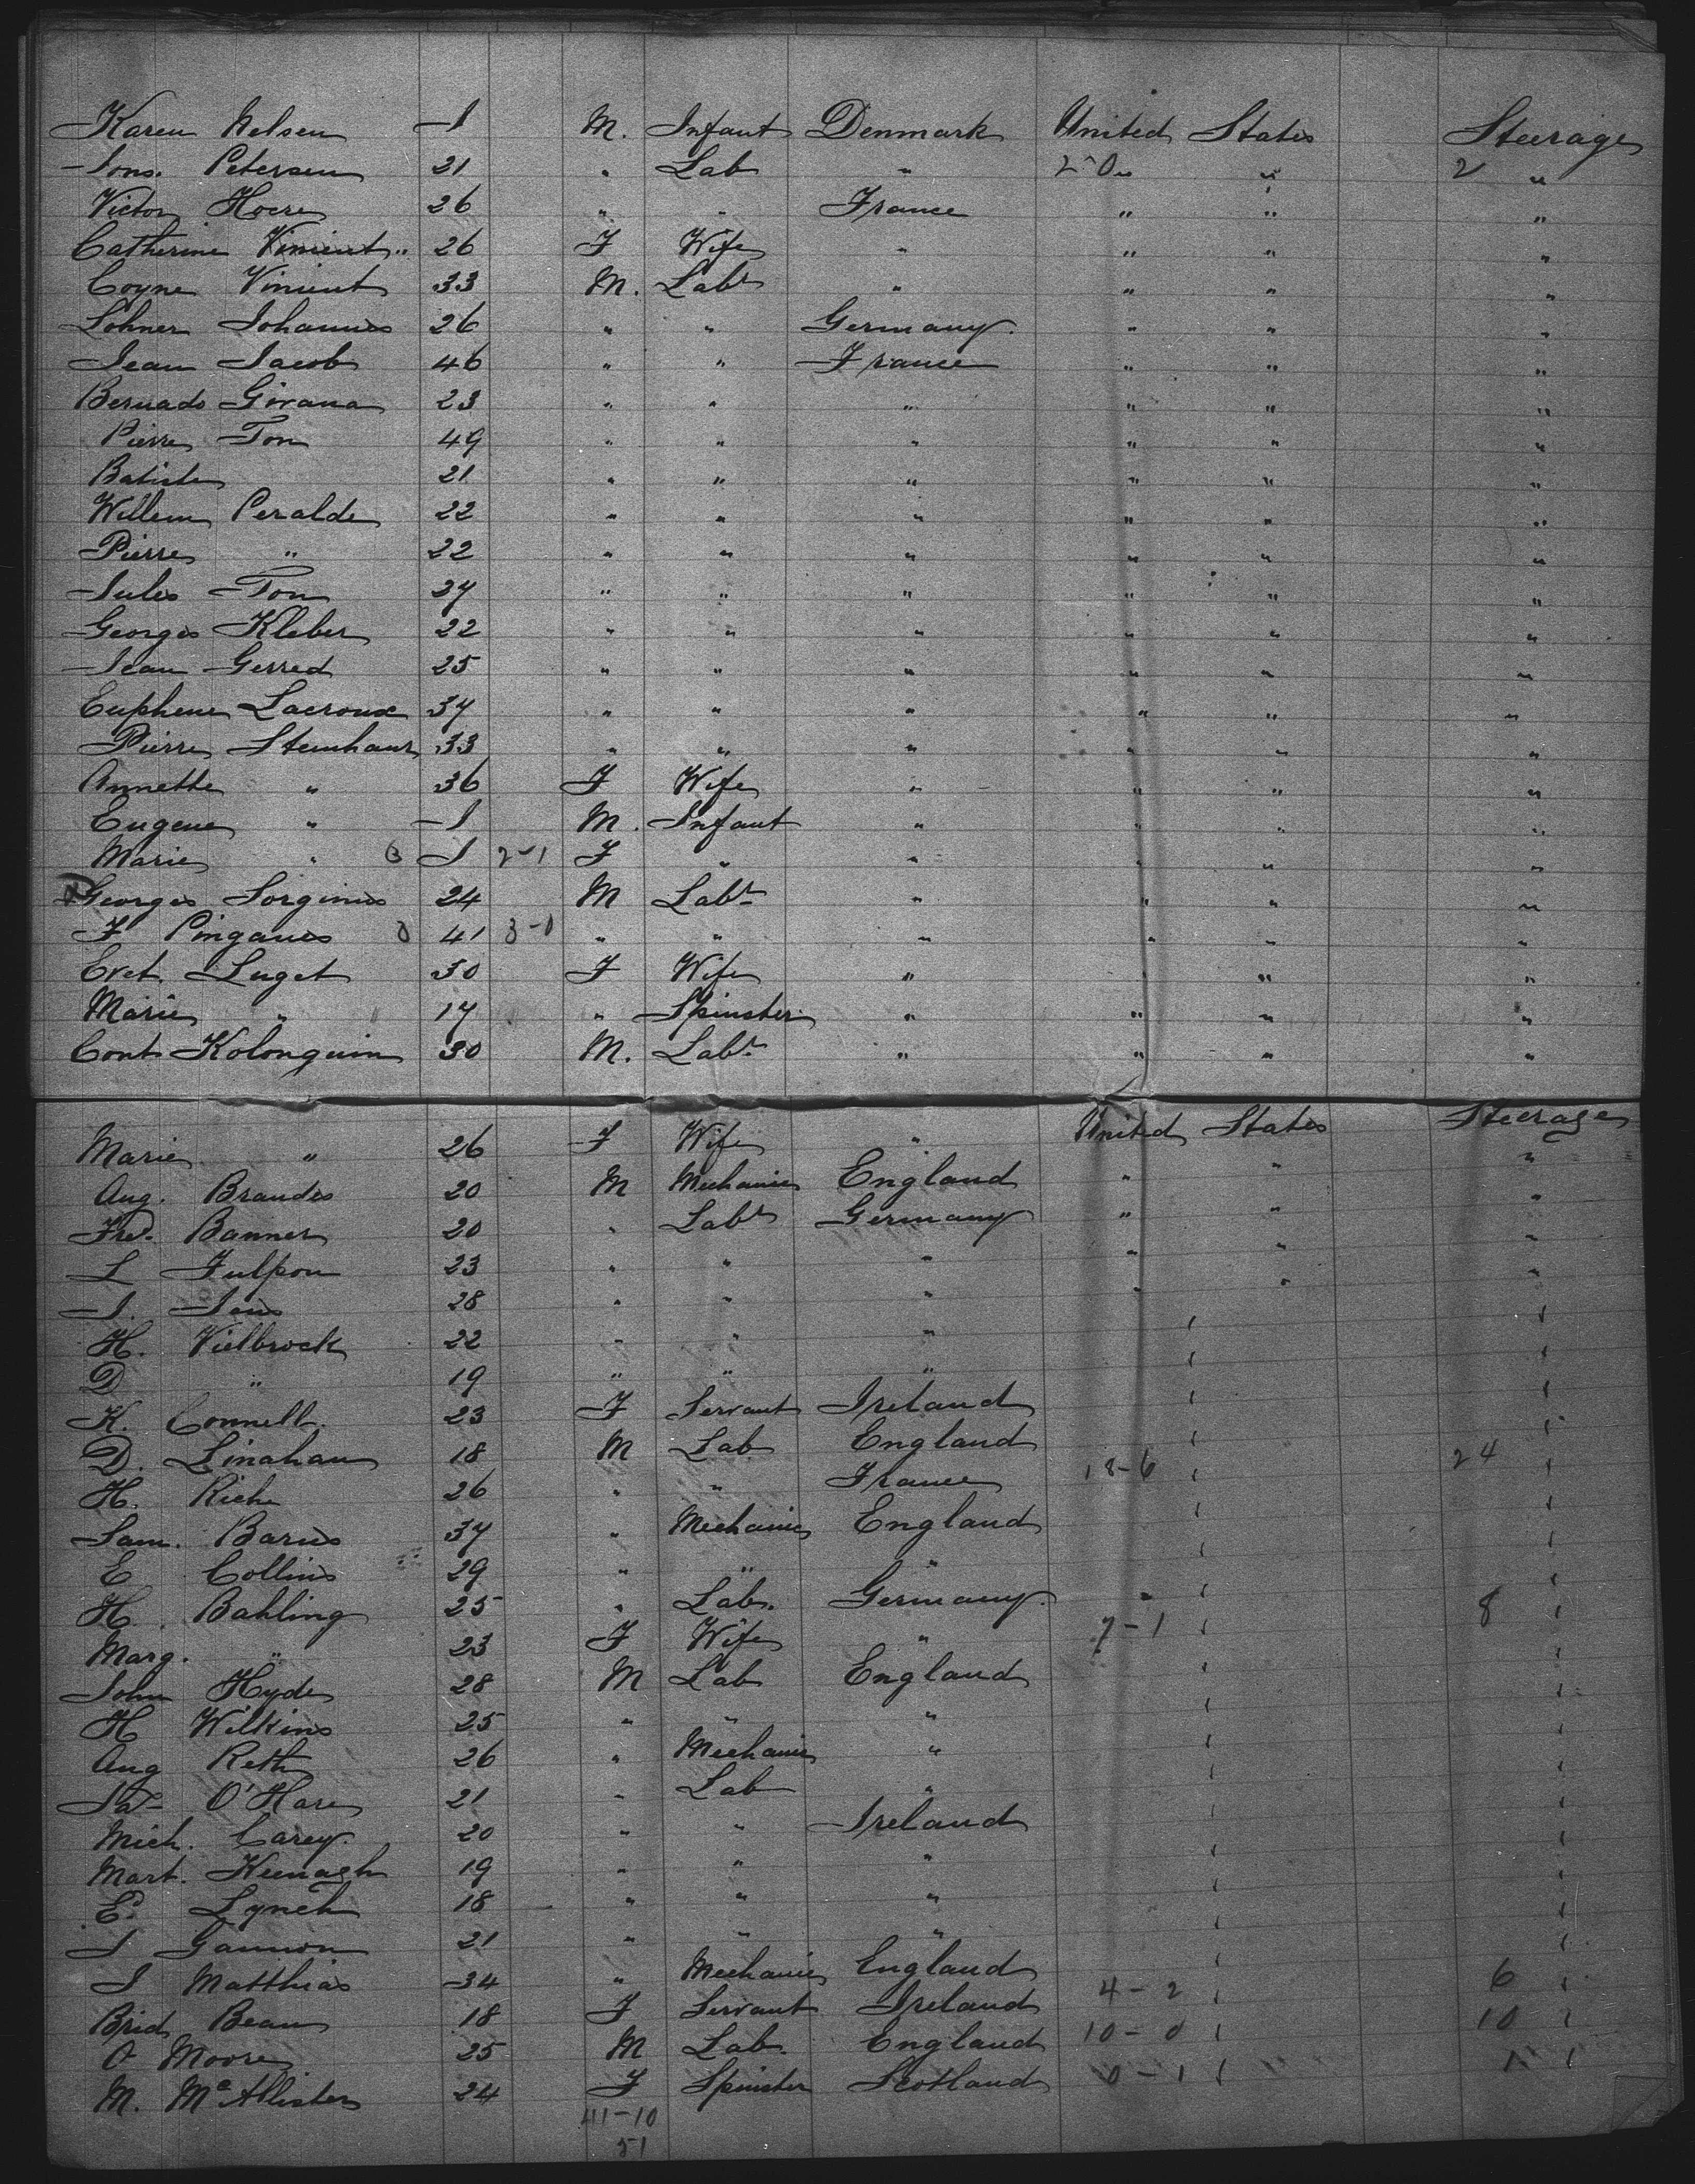 Karen Nelsen I M. Infant Denmark United States Steerage
Jons. Petersen 21 " Lab " 2-0 " " 2 "
Victor Hocre 26 " " France " " "
Catherine Vinient " 26 F Wife " " " "
Coyne Vinient 33 M. Labr " " " "
Lohner Johannes 26 " " Germany. " " "
Jean Jacob 46 " " France " " "
Bernado Givana 23 " " " " " "
Pierre Ton 49 " " " " " "
Batiste 21 " " " " " "
Willem Peralde 22 " " " " " "
Pierre " 22 " " " " " "
Jules Ton 27 " " " " " "
Georges Kleber 22 " " " " " "
Jean Gerred 25 " " " " " "
Euphene Lacroux 37 " " " " " "
Pierre Steinhaur 33 " " " " " "
Annette " 36 F Wife " " " "
Eugene " I M. Infant " " " "
Marie " I 2-1 F " " " " "
Georges Sorginis 24 M Labr " " " "
F Pinganes 41 3-0 " " " " " "
Evet. Luget 30 F Wife " " " "
Marie " 17 " Spinster " " " "
Cont Kolonguin 30 M. Labr " " " "
Marie " 26 F Wife " United States Steerage
Aug. Brandes 20 M Mechanic England " " "
Fre. Banner 20 " Labr Germany " " "
L Fulpon 23 " " " " " "
J. Jens 28 " " " " " "
H. Vielbrock 22 " " "
D " 19 " " "
K. Connell. 23 F Servant Ireland
D. Linahan 18 M Lab England
H. Riche 26 " " France 18-6 24
Sam. Barnes 37 " Mechanic England
E Collins 29 " " "
H. Bahling 25 " Lab. Germany. "
Marg. " 23 F Wife " 7-1 8
John Hyde 28 M Lab England
H Wilkins 25 " " "
Aug Reth 26 " Mechanic "
Pat O'Hare 21 " Lab "
Mich. Carey. 20 " " Ireland
Mart. Keenagh 19 " " "
E. Lynch 18 " " "
J Gannon 21 " " "
J Matthias 34 " Mechanic England
Brid Bean 18 F Servant Ireland 4-2 6
O Moore 25 M Lab. England 10-0 10
M. McAllister 24 F Spinster Scotland 0-1 1
41-10
51